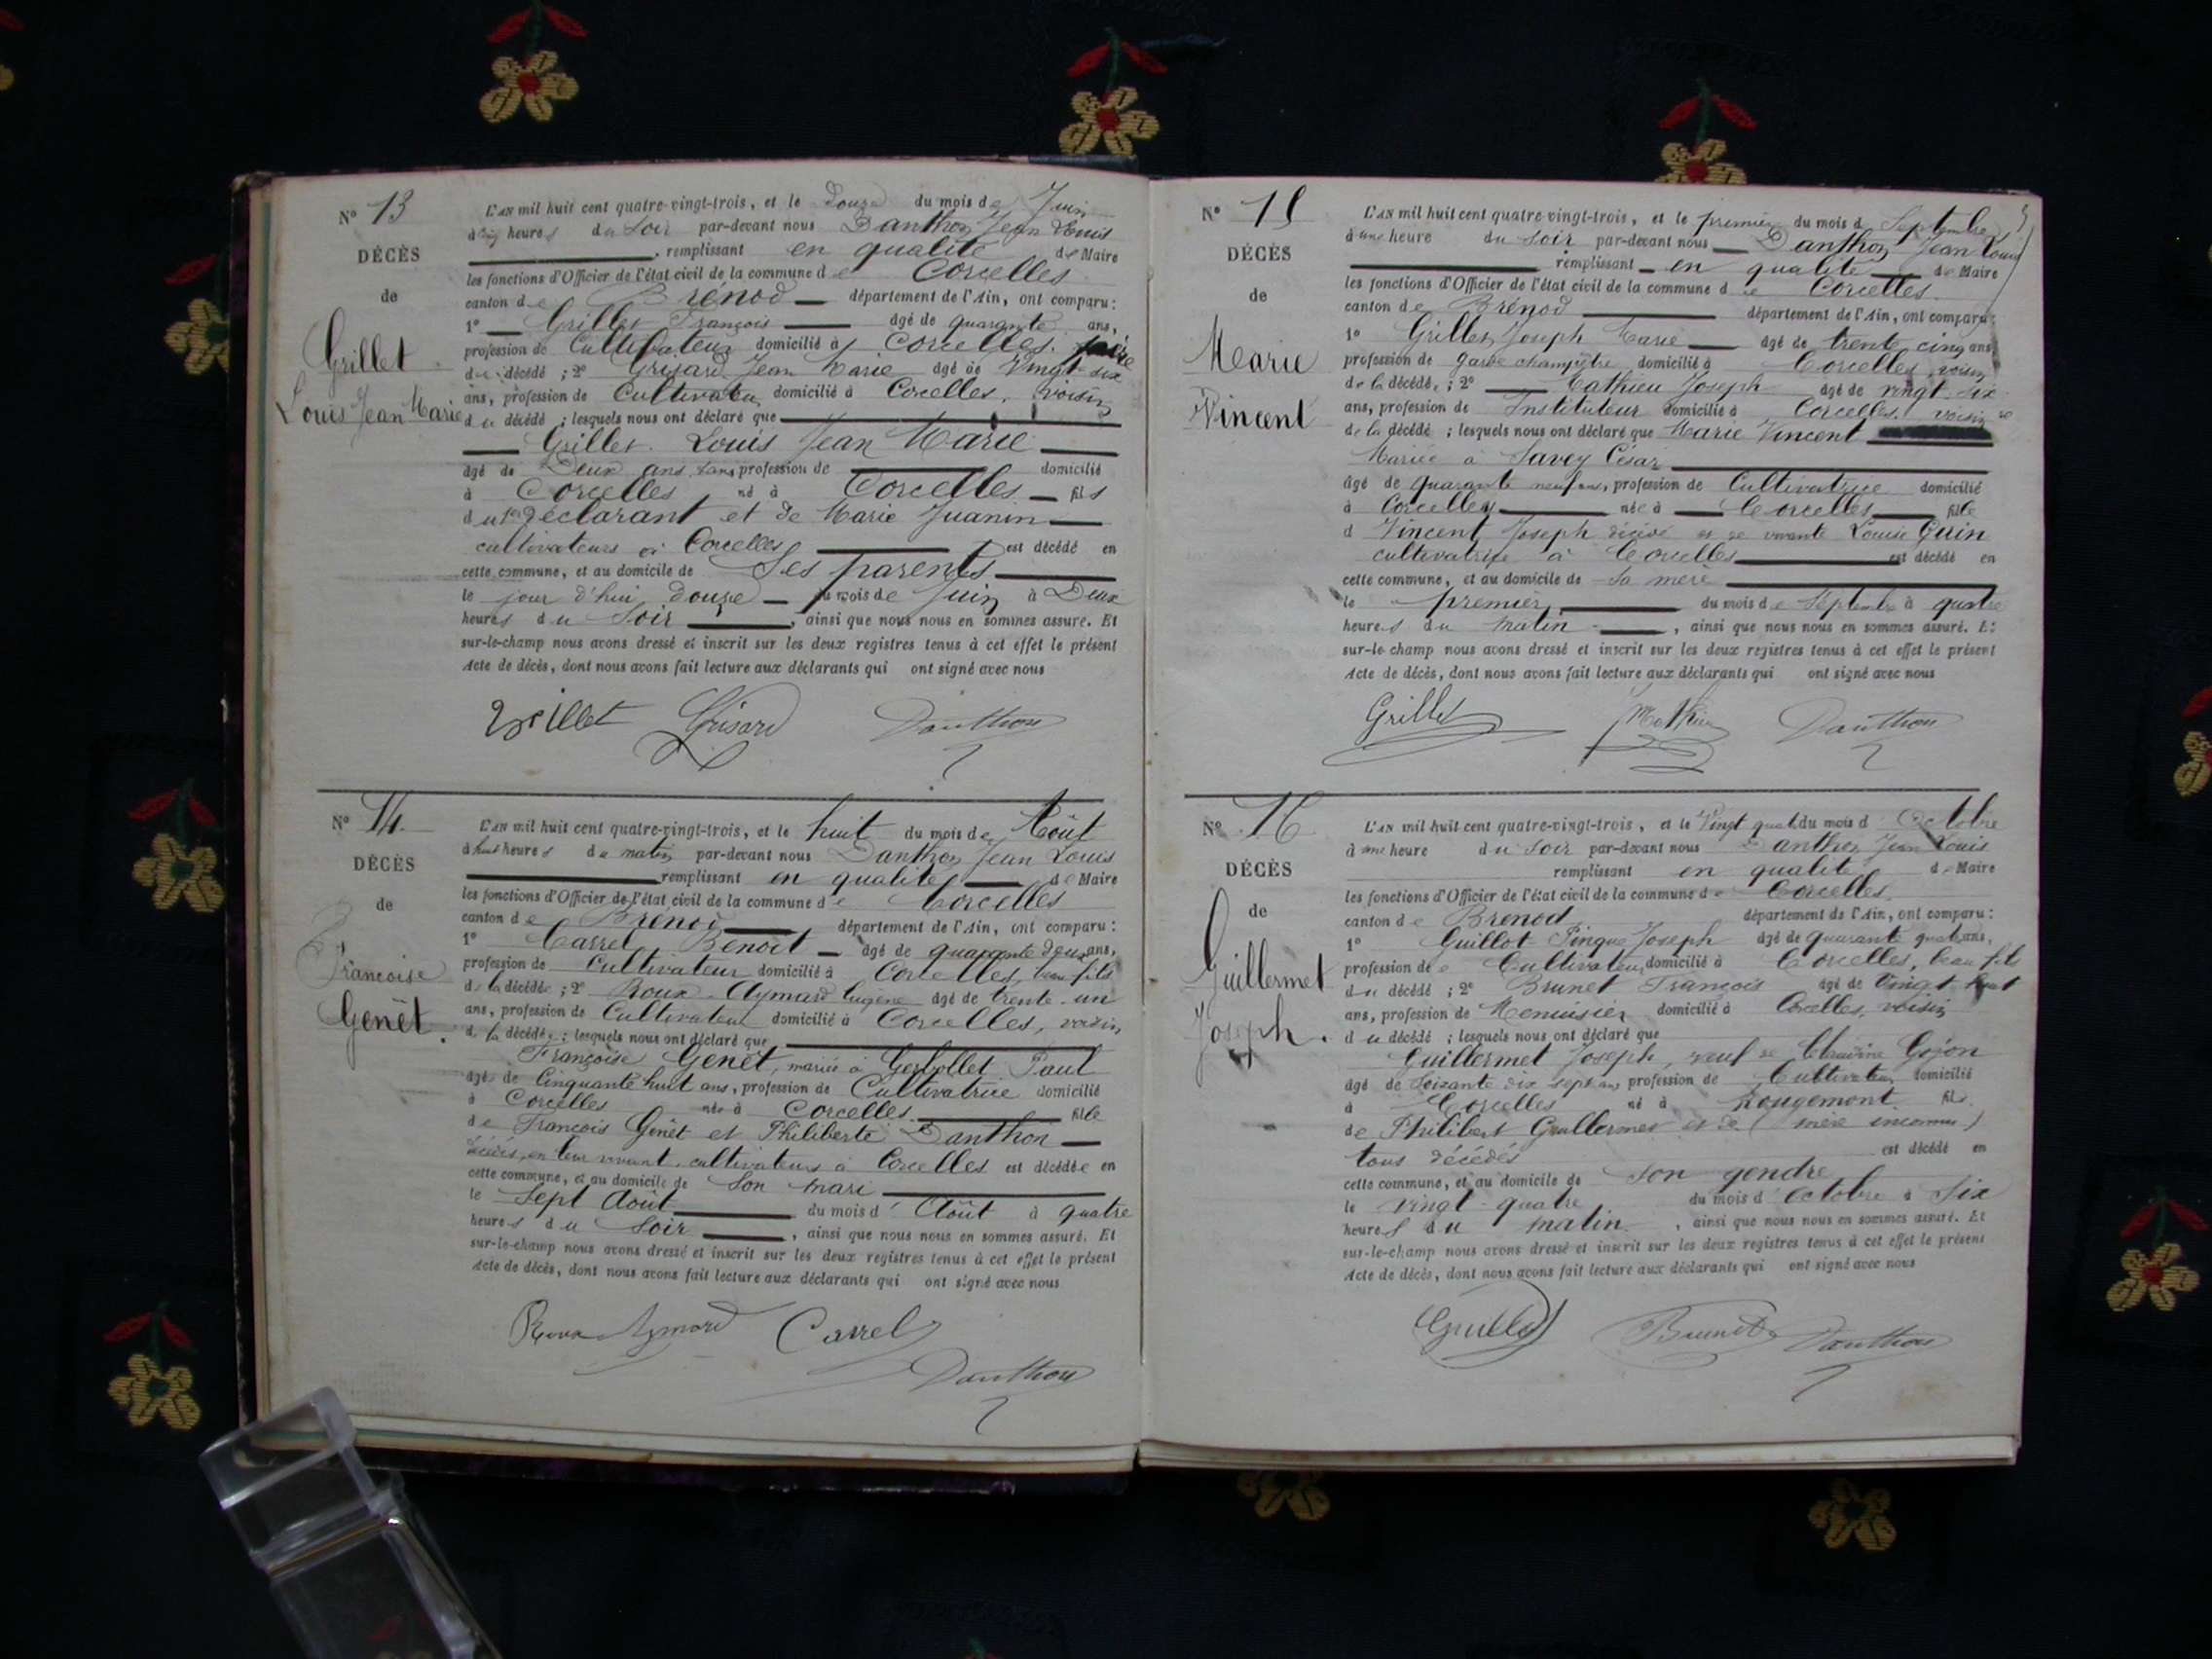 N° 13
DÉCÈS
de
Grillet
Louis Jean Marie
L'AN mil huit cent quatre-vingt-trois, et le Douze du mois de Juin
heures du soir par-devant nous Danthon Jean Louis
remplissant en qualité de Maire
les fonctions d'Officier de l'état civil de la commune de Corcelles
canton de Brénod département de l'Ain, ont comparu :
1° Grillet François âgé de quarante ans,
profession de Cultivateur domicilié à Corcelles, père
du décédé ; 2° Grisard Jean Marie âgé de Vingt-six
ans, profession de Cultivateur domicilié à Corcelles, voisin
du décédé ; lesquels nous ont déclaré que
Grillet Louis Jean Marie
âgé de Deux ans, sans profession de domicilié
à Corcelles né à Corcelles fils
du 1er Déclarant et de Marie Juanin
cultivateurs à Corcelles est décédé en
cette commune, et au domicile de Ses parents
le jour d'hui douze du mois de Juin à Deux
heures du Soir, ainsi que nous nous en sommes assuré. Et
sur-le-champ nous avons dressé et inscrit sur les deux registres tenus à cet effet le présent
Acte de décès, dont nous avons fait lecture aux déclarants qui ont signé avec nous
Grillet Grisard Danthon
N° 14
DÉCÈS
de
Françoise
Genêt.
L'AN mil huit cent quatre-vingt-trois, et le huit du mois de Août
à huit heures du matin par-devant nous Danthon Jean Louis
remplissant en qualité de Maire
les fonctions d'Officier de l'état civil de la commune de Corcelles
canton de Brénod département de l'Ain, ont comparu :
1° Carrel Benoît âgé de quarante deux ans,
profession de Cultivateur domicilié à Corcelles, beau fils
de la décédée ; 2° Roux-Aymard Eugène âgé de trente-un
ans, profession de Cultivateur domicilié à Corcelles, voisin
de la décédée ; lesquels nous ont déclaré que
Françoise Genêt, mariée à Gerbollet Paul
âgé de Cinquante huit ans, profession de Cultivatrice domicilié
à Corcelles née à Corcelles fille
de François Genêt et Philiberte Danthon
décédés, en leur vivant, cultivateurs à Corcelles est décédée en
cette commune, et au domicile de Son mari
le Sept Août du mois d'Août à quatre
heures du Soir, ainsi que nous nous en sommes assuré. Et
sur-le-champ nous avons dressé et inscrit sur les deux registres tenus à cet effet le présent
Acte de décès, dont nous avons fait lecture aux déclarants qui ont signé avec nous
Roux-Aymard Carrel
Danthon
N° 15
DÉCÈS
de
Marie
Vincent
L'AN mil huit cent quatre-vingt-trois, et le premier du mois d Septembre
à une heure du soir par-devant nous Danthon Jean Louis
remplissant en qualité de Maire
les fonctions d'Officier de l'état civil de la commune de Corcelles
canton de Brénod département de l'Ain, ont comparu :
1° Grillet Joseph Marie âgé de trente cinq ans,
profession de garde champêtre domicilié à Corcelles, voisin
de la décédée ; 2° Mathieu Joseph âgé de vingt-six
ans, profession de Instituteur domicilié à Corcelles, voisin
de la décédé ; lesquels nous ont déclaré que Marie Vincent
Mariée à Savey César
âgé de quarante neuf ans, profession de Cultivatrice domicilié
à Corcelles née à Corcelles fille
d Vincent Joseph décédé et de vivante Louise Guin
cultivatrice à Corcelles est décédé en
cette commune, et au domicile de Sa mère
le premier du mois de Septembre à quatre
heures du matin, ainsi que nous nous en sommes assuré. Et
sur-le-champ nous avons dressé et inscrit sur les deux registres tenus à cet effet le présent
Acte de décès, dont nous avons fait lecture aux déclarants qui ont signé avec nous
Grillet Mathieu Danthon
N° 16
DÉCÈS
de
Guillermet
Joseph.
L'AN mil huit cent quatre-vingt-trois, et le Vingt quat. du mois d Octobre
à une heure du soir par-devant nous Danthon Jean Louis
remplissant en qualité de Maire
les fonctions d'Officier de l'état civil de la commune de Corcelles
canton de Brenod département de l'Ain, ont comparu :
1° Guillot Pingue Joseph âgé de quarante quatre ans,
profession de Cultivateur domicilié à Corcelles, beau fils
du décédé ; 2° Brunet François âgé de Vingt-huit
ans, profession de Menuisier domicilié à Corcelles, voisin
du décédé ; lesquels nous ont déclaré que
Guillermet Joseph, veuf de Claudine Gojon
âgé de Soixante dix sept ans profession de Cultivateur domicilié
à Corcelles né à Rougemont fils
de Philibert Guillermet et de (mère inconnue)
tous décédés est décédé en
cette commune, et au domicile de Son gendre
le vingt-quatre du mois d'Octobre à Six
heures du matin, ainsi que nous nous en sommes assuré. Et
sur-le-champ nous avons dressé et inscrit sur les deux registres tenus à cet effet le présent
Acte de décès, dont nous avons fait lecture aux déclarants qui ont signé avec nous
Guillot Brunet Danthon